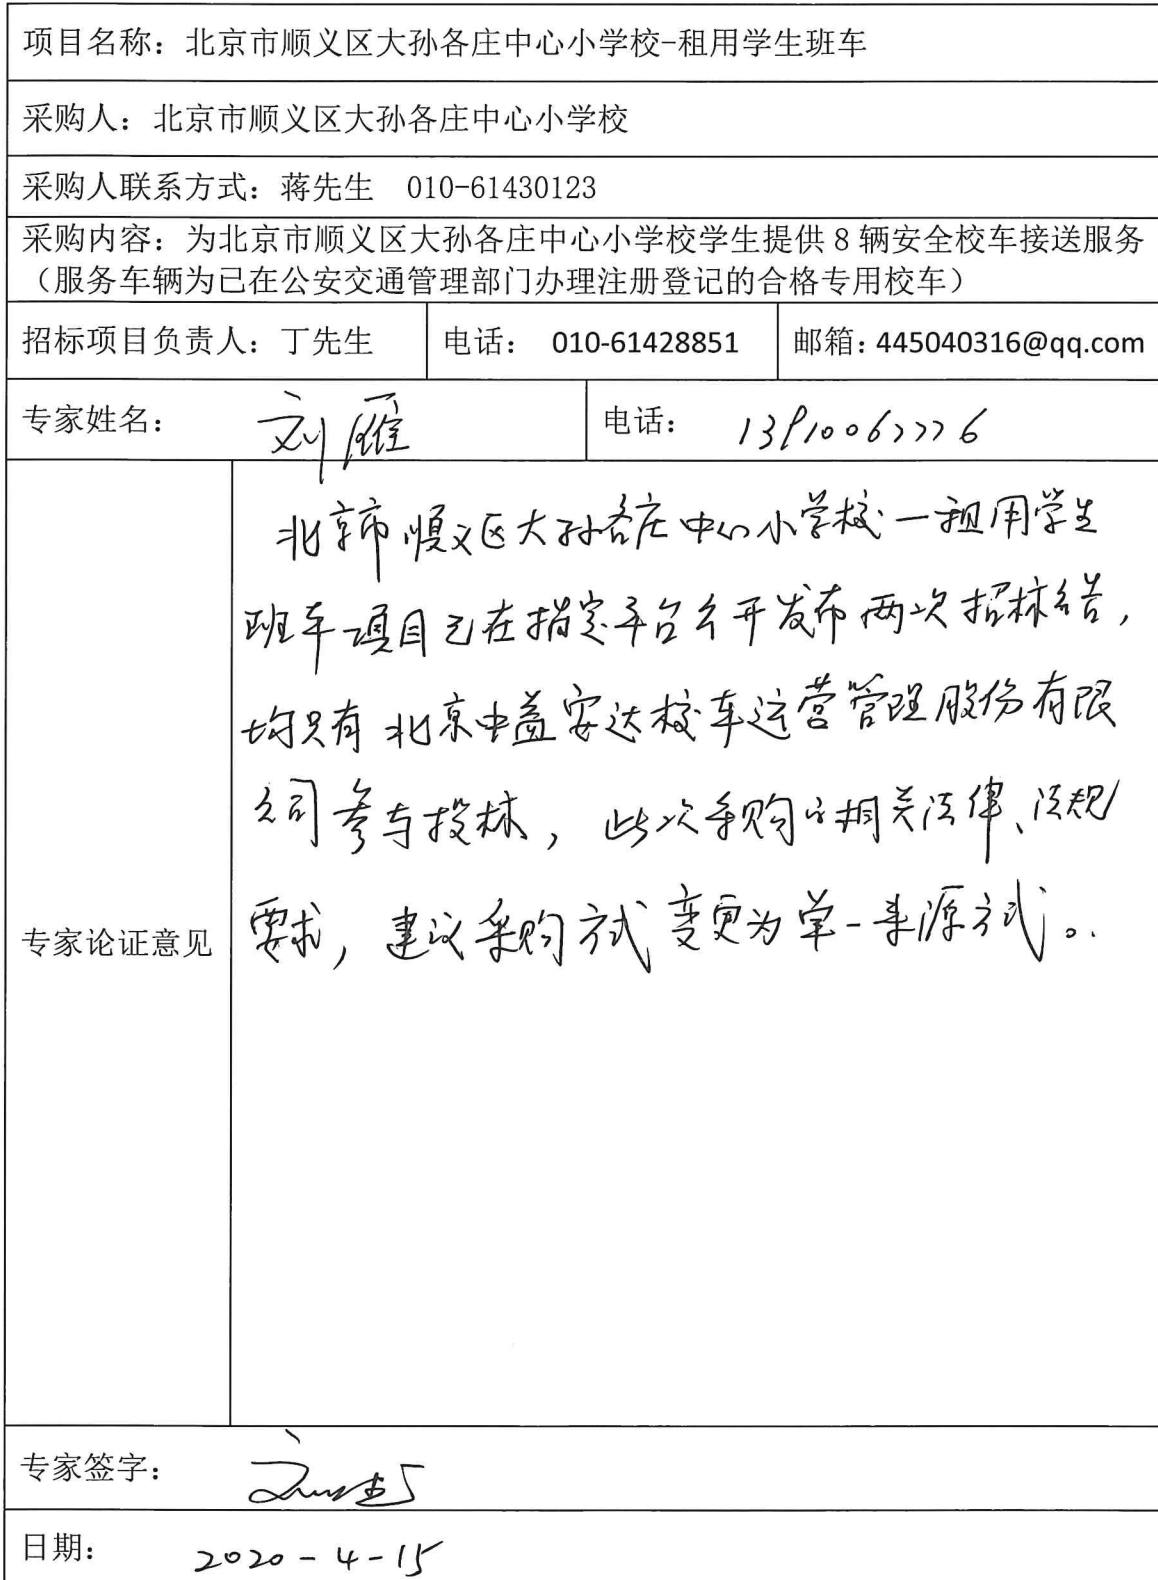 项目名称：北京市顺义区大孙各庄中心小学校-租用学生班车
采购人：北京市顺义区大孙各庄中心小学校
采购人联系方式：蒋先生 010-61430123
采购内容：为北京市顺义区大孙各庄中心小学校学生提供8辆安全校车接送服务
（服务车辆为已在公安交通管理部门办理注册登记的合格专用校车）
招标项目负责人：丁先生 电话： 010-61428851 邮箱：445040316@qq.com
专家姓名： 刘雁 电话： 13910067776
专家论证意见
北京市顺义区大孙各庄中心小学校一租用学生
班车项目已在指定平台公开发布两次招标公告，
均只有北京中益安达校车运营管理股份有限
公司参与投标，此次采购的相关法律、法规
要求，建议采购方式变更为单一来源方式。
专家签字：
日期： 2020-4-15